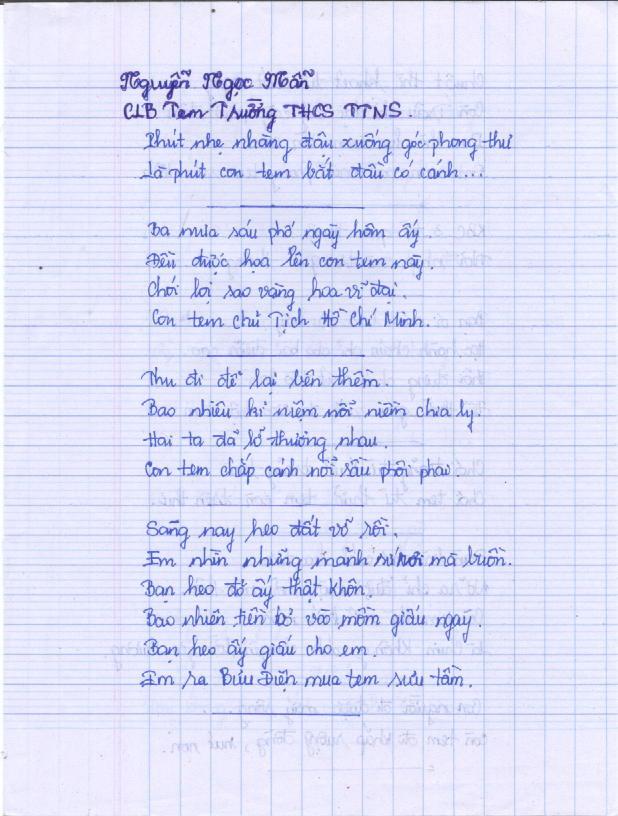 Nguyễn Ngọc Mẫn
CLB Tem Trường THCS TTNS.
Phút nhẹ nhàng đậu xuống góc phong thư
Là phút con tem bắt đầu có cánh...
Ba mưa sáu phố ngày hôm ấy.
Đều được họa lên con tem này.
Chói lọi sao vàng hoa vĩ đại.
Con tem chủ Tịch Hồ Chí Minh.
Thu đi để lại bên thềm.
Bao nhiêu kỉ niệm nổi niềm chia ly.
Hai ta đã lỡ thương nhau.
Con tem chắp cánh nỗi sầu phôi phai.
Sáng nay heo đất vỡ rồi.
Em nhìn những mảnh sứ rơi mà buồn.
Bạn heo đỏ ấy thật khôn.
Bao nhiên tiền bỏ vào mồm giấu ngay.
Bạn heo ấy giấu cho em.
Em ra Bưu Điện mua tem sưu tầm.